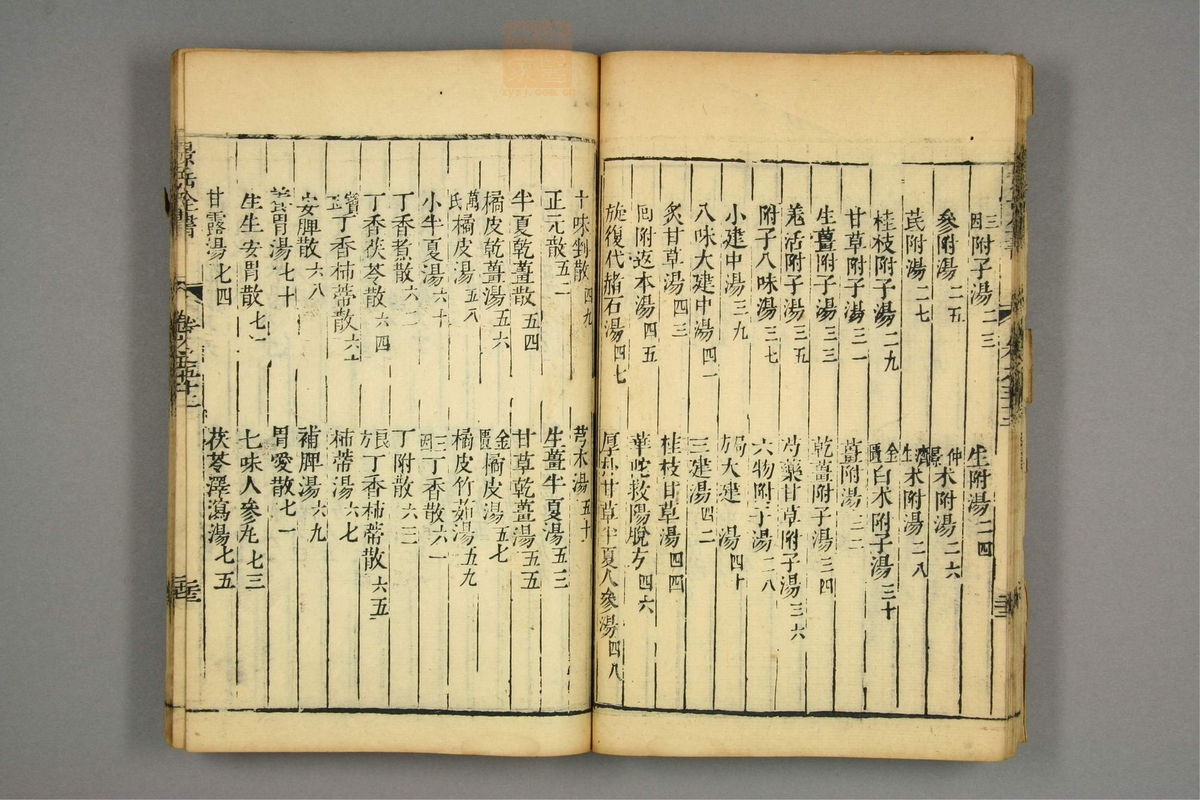 三因附子湯二三　生附湯二四
參附湯二五　仲景朮附湯二六
芪附湯二七　濟生朮附湯二八
桂枝附子湯二九　金匱白朮附子湯三十
甘草附子湯三一　薑附湯三二
生薑附子湯三三　乾薑附子湯三四
羗活附子湯三五　芍藥甘草附子湯三六
附子八味湯三七　六物附子湯二八
小建中湯三九　大建　湯四十
八味大建中湯四一　三建湯四二
炙甘草湯四三　桂枝甘草湯四四
回附返本湯四五　華佗救陽脫方四六
旋復代赭石湯四七　厚朴甘草半夏人參湯四八
十味剉散四九　芎朮湯五十
正元散五二　生薑半夏湯五三
半夏乾薑散五四　甘草乾薑湯五五
橘皮乾薑湯五六　金匱橘皮湯五七
萬氏橘皮湯五八　橘皮竹茹湯五九
小半夏湯六十　三因丁香散六一
丁香煮散六二　丁附散六三
丁香茯苓散六四　良方丁香柿蒂散六五
寶鑑丁香柿蒂散六六　柿蒂湯六七
安脾散六八　補脾湯六九
養胃湯七十　胃愛散七一
生生安胃散七二　七味人參丸七三
甘露湯七四　茯苓澤瀉湯七五
景岳全書
卷之五十三